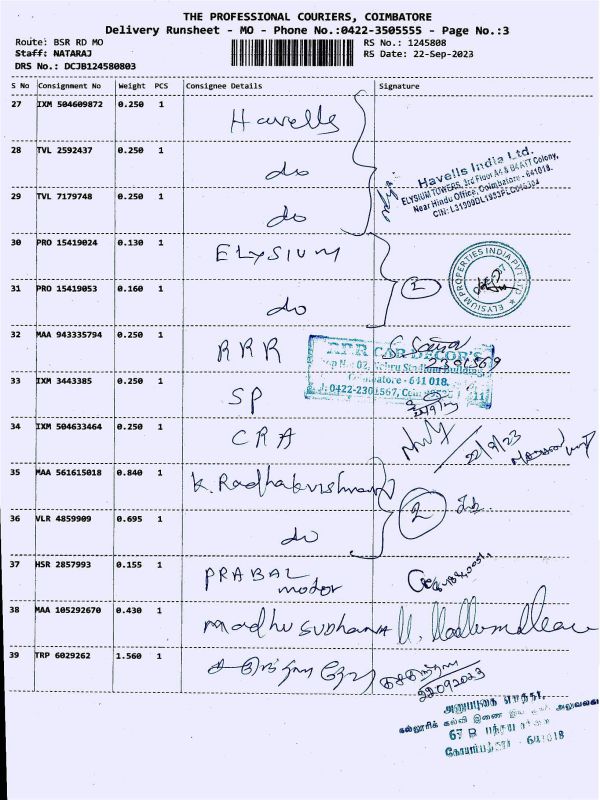 THE PROFESSIONAL COURIERS, COIMBATORE
Delivery Runsheet - MO - Phone No.:0422-3505555 - Page No.:3
Route: BSR RD MO
RS No.: 1245808
Staff: NATARAJ
RS Date: 22-Sep-2023
DRS No.: DCJB124580803
S No Consignment No Weight PCS Consignee Details Signature
27 IXM 504609872 0.250 1 Havells
28 TVL 2592437 0.250 1 do
Havells India Ltd.
ELYSIUM TOWERS, 3rd Floor
Near Hindu Office, Coimbatore - 641018.
29 TVL 7179748 0.250 1 do
30 PRO 15419024 0.130 1 ELYSIUM
ELYSIUM PROPERTIES INDIA PVT LTD
31 PRO 15419053 0.160 1 do 2
32 MAA 943335794 0.250 1 RRR
RPR CAR DECOR'S
Nehru Stadium Building
Coimbatore - 641 018.
33 IXM 3443385 0.250 1 SP
34 IXM 504633464 0.250 1 CRA 22/9/23
35 MAA 561615018 0.840 1 K. Radhakrishnan
36 VLR 4859909 0.695 1 do 2
37 HSR 2857993 0.155 1 PRABAL motor
38 MAA 105292670 0.430 1 Madhu SUDHANA
39 TRP 6029262 1.560 1
22092023
கல்லூரிக் கல்வி இணை
67 B
641018